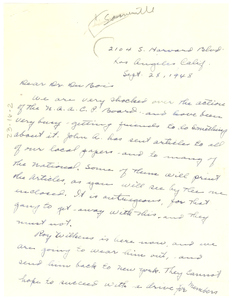 Somerville
2104 S. Harvard Blvd
Los Angeles Calif
Sept. 28 - 1948
Dear Dr. Du Bois
We are very shocked over the action
of the N.A.A.C.P. Board - and have been
very busy - getting friends to do something
about it. John A. has sent articles to all
of our local papers - and to many of
the National. Some of them will print
the articles, as you will see by the one
enclosed. It is outrageous, for that
gang to get away with this, and they
must not.
Roy Wilkins is here now and we
are going to wear him out, and
send him back to New York. They cannot
hope to succeed with a drive for members